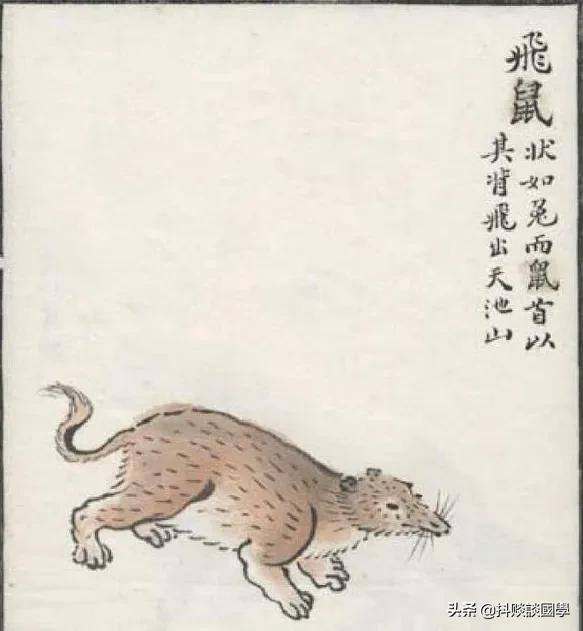 飛鼠
狀如兎而鼠首以
其背飛出天池山
头条 @抖贱談國學